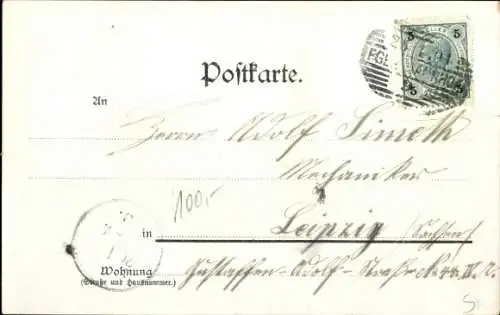 5 5
Postkarte.
An
Herrn Adolf Simeth
Mechaniker
100,-
in Leipzig (Sachsen)
Wohnung
(Straße und Hausnummer.)
Gustaffen-Adolf-Straße